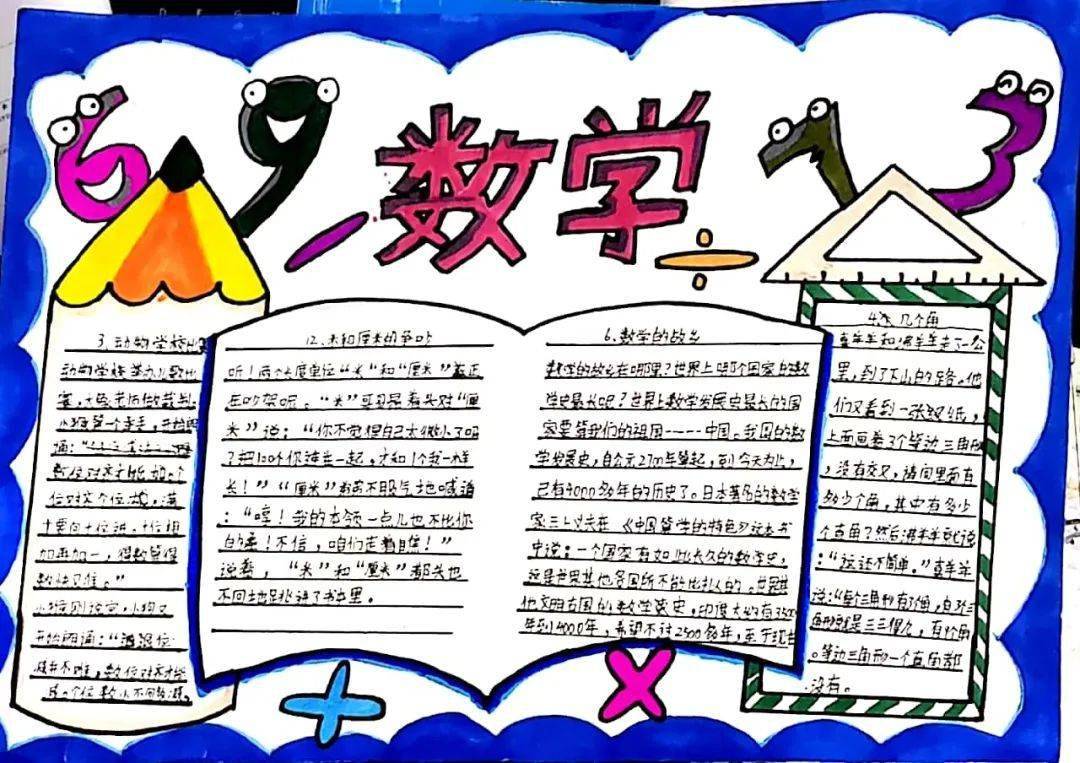 数学
3、动物学校出
动物学校举办儿歌比
赛,大象老师做裁判。
小猴第一个走上,开始朗
诵:
数位对齐才能加。个
位对齐个位加,满
十要向十位进。十位相
加再加一,得数算得
快又准。”
小猴刚说完,小狗又
开始朗诵:“退位
减并不难,数位对齐才能
减。个位数小不够减
12、米和厘米的争吵
听!两个长度单位“米”和“厘米”正
在吵架呢。“米”昂着头对“厘
米”说:“你不觉得自己太微小了吗
?把100个你连在一起,才和1个我一样
长!”“厘米”不服气地喊道
:“哼!我的本领一点儿也不比你
的差!不信,咱们走着瞧!”
说着,“米”和“厘米”都头也
不回地跳进了书中里。
6、数学的故乡
数学的故乡在哪里?世界上哪个国家的数
学史最长呢?世界上数学发展史最长的国
家要算我们的祖国-----中国。我国的数
学发展史,自公元2700年算起,到今天为止,
已有4000多年的历史了。日本著名的数学
家三上义夫在《中国算学的特色》这本书
中说:一个国家有如此长久的数学史,
这是世界其他各国所不能比拟的。世界其
他文明古国的数学史,印度大约有3500
年到4000年,希腊不过2500多年,至于现
几个角
喜羊羊和懒羊羊走了一公
里,到了下山的路。他
们又看到一张纸,
上面画着3个等边三角形
,没有交叉,请问里面有
多少个角,其中有多少
个直角?然后懒羊羊就说
:“这还不简单。”喜羊羊
说:“每个三角形有3个角,
三三得九,有9个角
。等边三角形一个直角都
没有。